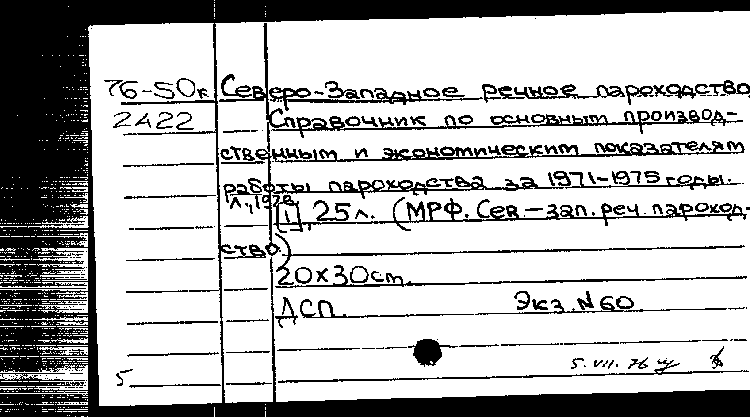 76-50к Северо-Западное речное пароходство
2422 Справочник по основным производ-
ственным и экономическим показателям
работы пароходства за 1971-1975 годы.
Л., 1976
[1], 25 л. (МРФ. Сев.-зап. реч. пароход-
ство)
20х30 см.
ДСП. Экз. N 60
5. VII. 76
5